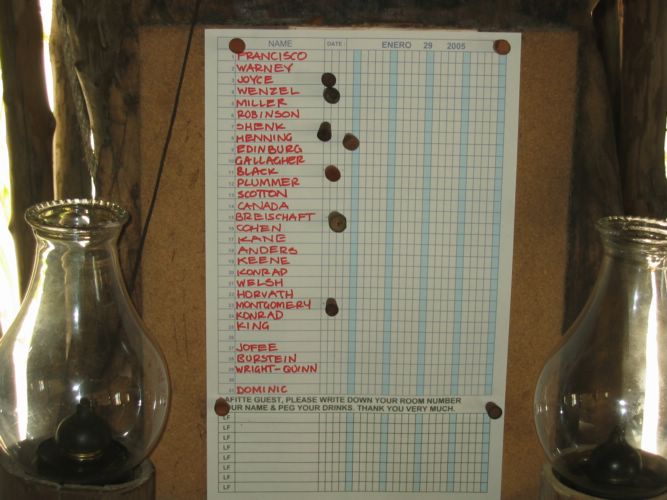 NAME DATE ENERO 29 2005
1 FRANCISCO
2 WARNEY
3 JOYCE
4 WENZEL
5 MILLER
6 ROBINSON
7 SHENK
8 HENNING
9 EDINBURG
10 GALLAGHER
11 BLACK
12 PLUMMER
13 SCOTTON
14 CANADA
15 BREISCHAFT
16 COHEN
17 KANE
18 ANDERS
19 KEENE
20 KONRAD
21 WELSH
22 HORVATH
23 MONTGOMERY
24 KONRAD
25 KING
26
27 JOFEE
28 BURSTEIN
29 WRIGHT-QUINN
30
31 DOMINIC
LAFITTE GUEST, PLEASE WRITE DOWN YOUR ROOM NUMBER
YOUR NAME & PEG YOUR DRINKS. THANK YOU VERY MUCH.
LF
LF
LF
LF
LF
LF
LF
LF